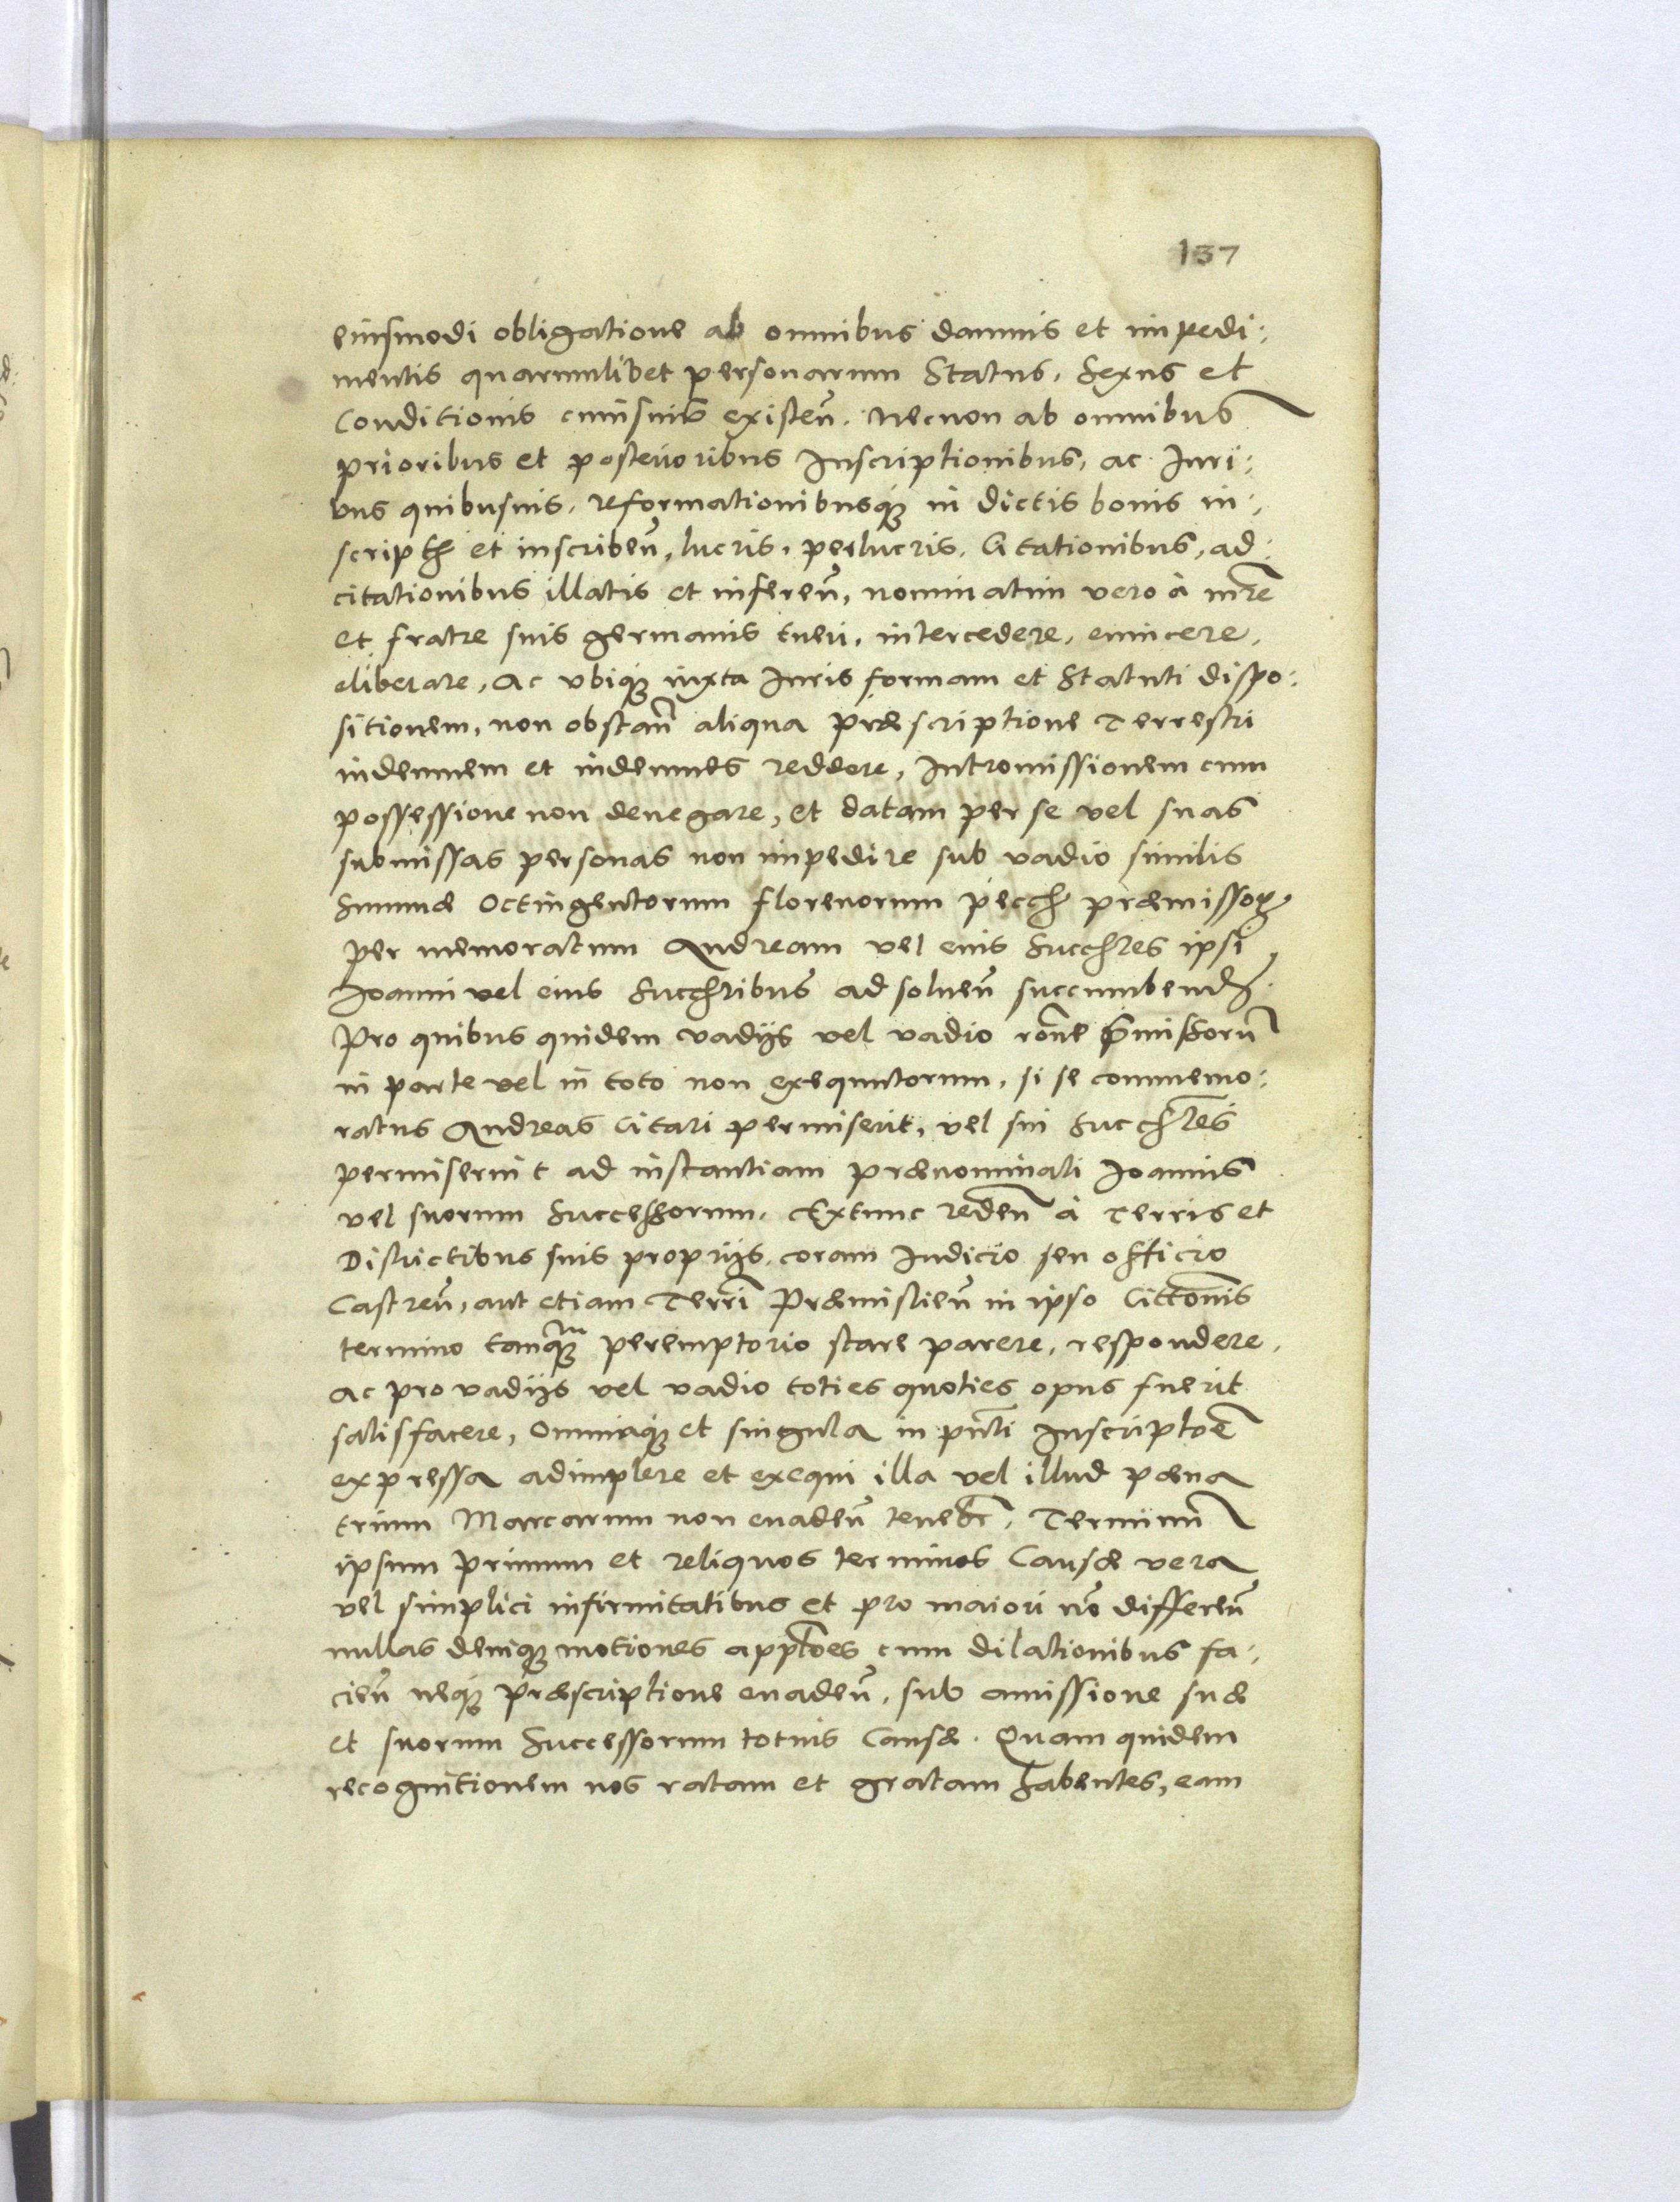 137
eiusmodi obligatione ab omnibus damnis et impedi:
mentis quarumlibet personarum Status, Sexus et
Conditionis cuiusuis existen̄. Necnon ab omnibus
prioribus et posterioribus Inscriptionibus, ac Juri:
bus quibusuis, reformationibusq̃ in dictis bonis in:
scripth et inscriben̄, lucris, perlucris, Citationibus, ad:
citationibus illatis et inferen̄, nominatim vero à mr̃e
et fratre suis germanis tueri, intercedere, euincere,
eliberare, Ac vbiq̃ iuxta Juris formam et Statuti dispo:
sitionem, non obstan̄ aliqua Præscriptione Terrestri
indemnem et indemnes reddere, Intromissionem cum
possessione non denegare, et datam per se vel suas
submissas personas non impedire sub vadio similis
Summæ Octingentorum florenorum pecch præmissoꝝ
per memoratum Andream vel eius Succhres ipsi
Joanni vel eius Succhribus ad soluen̄ succumbendh.
Pro quibus quidem vadijs vel vadio rōne p̄missorū
in parte vel in toto non exequutorum, si se commemo:
ratus Andreas Citari permiserit, vel sui Succhres
permiserint ad instantiam prænominati Joannis
vel suorum Successorum. Extunc reden̄ à Terris et
Districtibus suis proprijs, coram Judicio seu officio
Castren̄, aut etiam Terrĩ Præmislien̄ in ipso Cittõnis
termino tanq̃m peremptorio stare parere, respondere,
ac pro vadijs vel vadio toties quoties opus fuerit
satisfacere, Omniaq̃ et singula in pn̄ti Inscriptõe
expressa adimplere et exequi illa vel illud pæna
trium Marcarum non euaden̄ tenebr̃, Terminū
ipsum primum et reliquos terminos Causæ vera
vel simplici infirmitatibus et pro maiori nō differen̄
nullas deniq̃ motiones appłoes cum dilationibus fa:
cien̄ neq̃ Præscriptione euaden̄, sub amissione suæ
et suorum Successorum totius Causæ. Quam quidem
recognitionem nos ratam et gratam habentes, eam